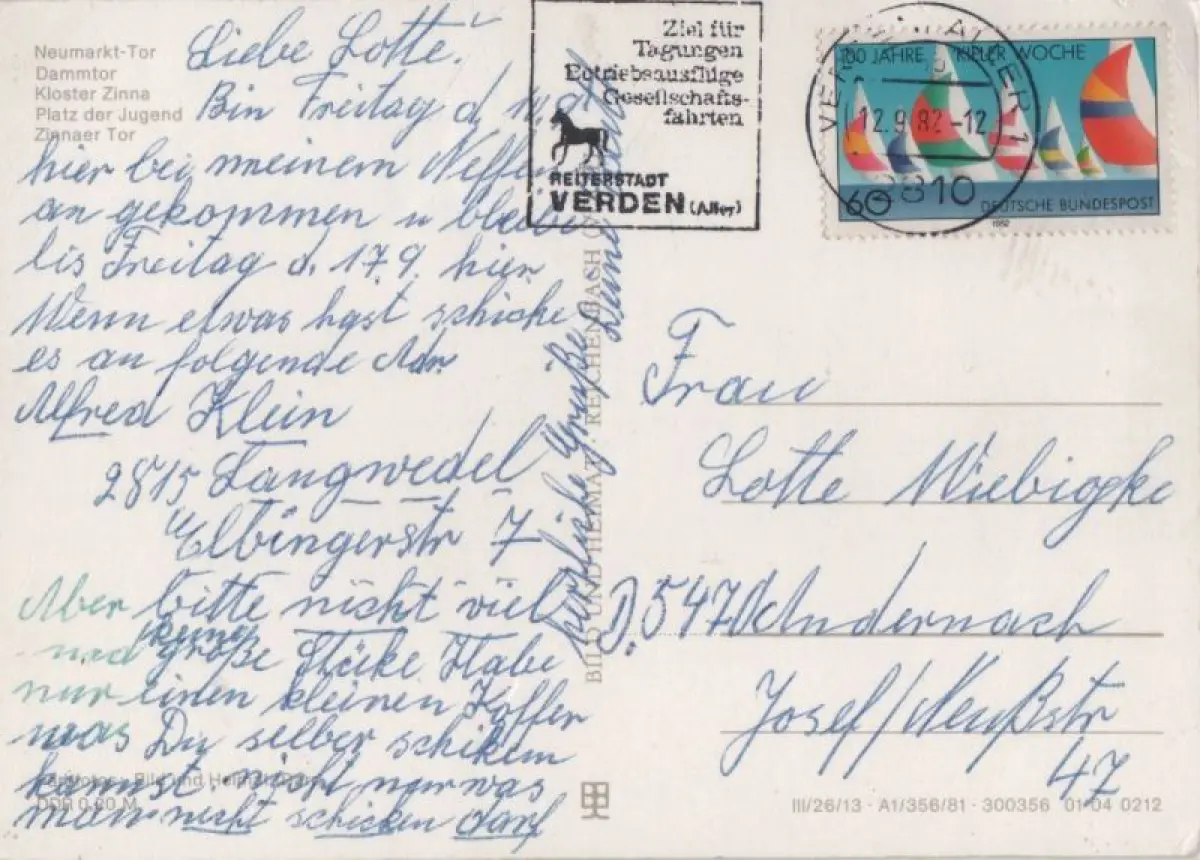 Neumarkt-Tor
Dammtor
Kloster Zinna
Platz der Jugend
Zinnaer Tor
Liebe Lotte!
Bin Freitag d. 10.9.
hier bei meinem Neffen
an gekommen u bleibe
bis Freitag d. 17 9. hier
Wenn etwas hast schicke
es an folgende Adr.
Alfred Klein
2815 Langwedel
Elbingerstr 7
Aber bitte nicht viel
und keine
große Stücke Habe
nur einen kleinen Koffer
was Du selber schiken
kannst, nicht nur was
man nicht schicken darf
herzliche Grüße
Deine
BILD UND HEIMAT · REICHENBACH
Bild und Heimat
DDR 0,20 M
Ziel für
Tagungen
Betriebsausflüge
Gesellschafts-
fahrten
REITERSTADT
VERDEN (Aller)
100 JAHRE KIELER WOCHE
60
DEUTSCHE BUNDESPOST
1982
12.9.82-12
2810
Frau
Lotte Wiebigke
D. 547 Andernach
Josef/Neußstr
47
III/26/13 · A1/356/81 · 300356 01 04 0212